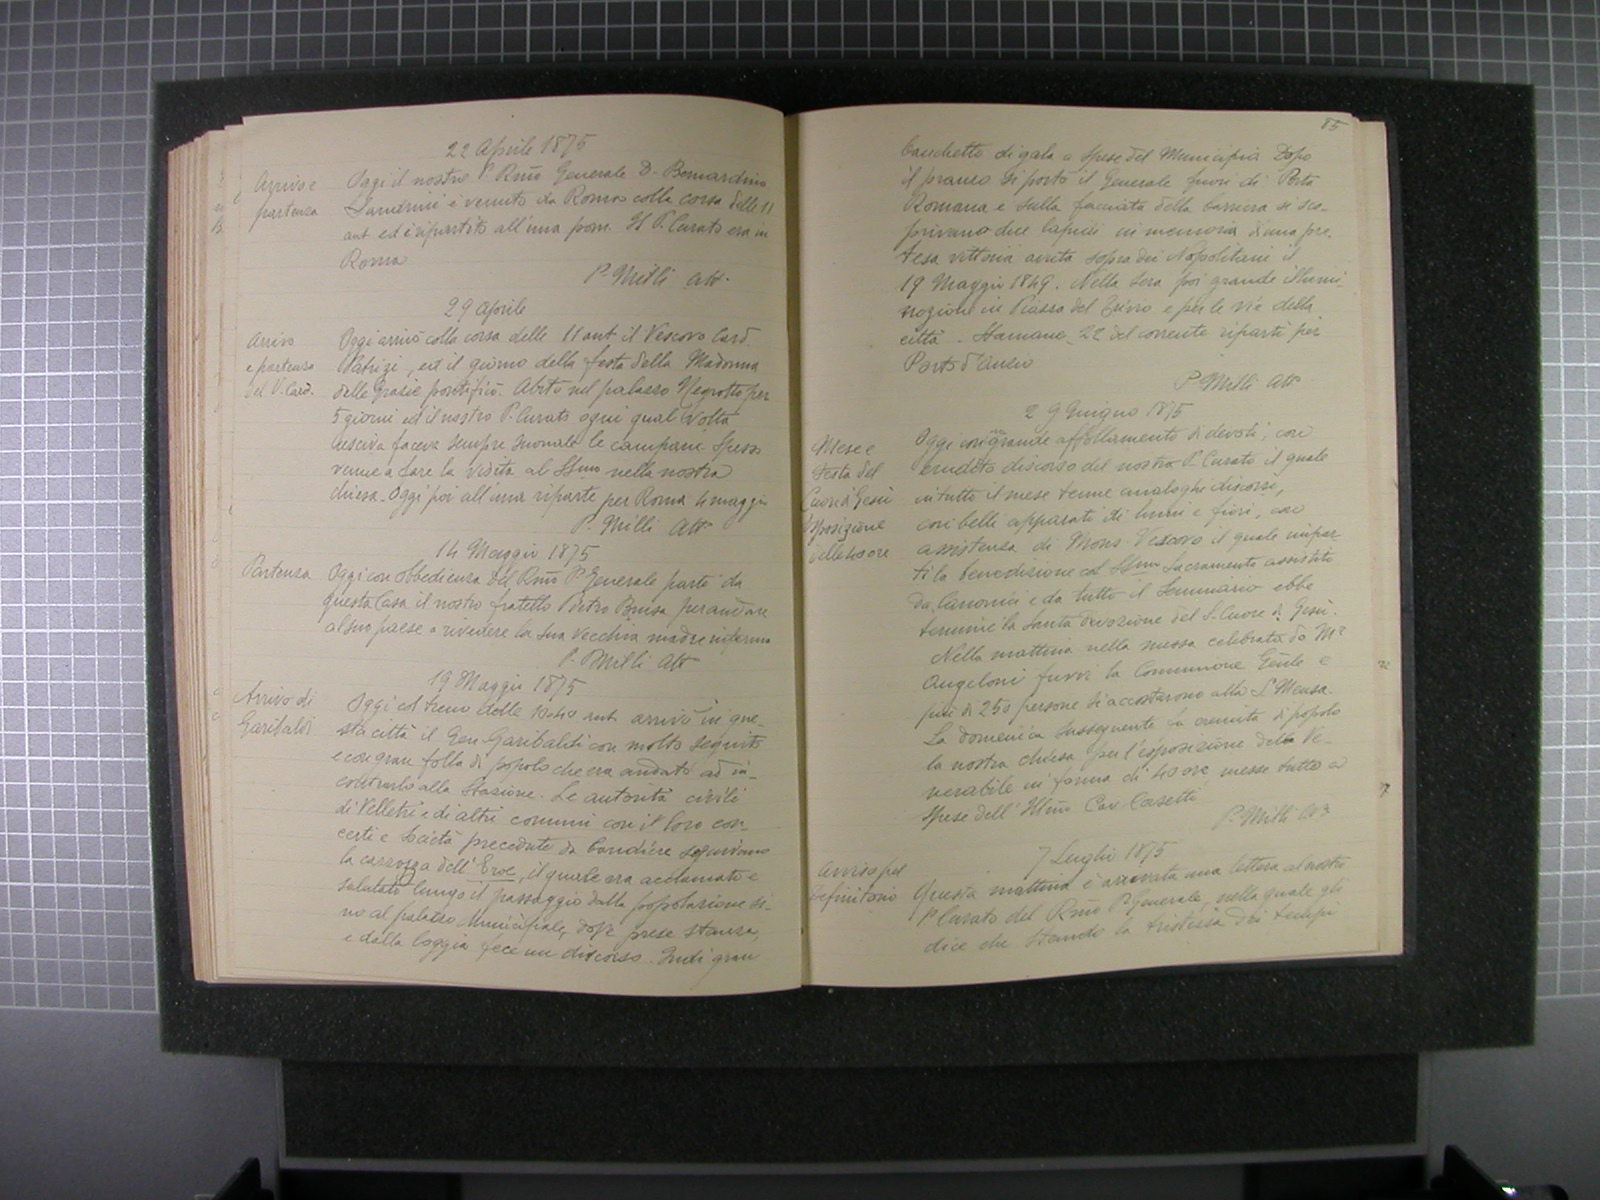 22 Aprile 1875
Arrivo e
partenza
Oggi il nostro P. Rmo Generale D. Bernardino
Sandrini è venuto da Roma colla corsa delle 11
ant. ed è ripartito all'una pom. Il P. Curato era in
Roma
P. Milli Att.
29 Aprile
Arrivo
e partenza
del V. Card.
Oggi arrivò colla corsa delle 11 ant. il Vescovo Card.
Patrizi, ed il giorno della festa della Madonna
delle Grazie pontificò. Abitò nel palazzo Negrotto per
5 giorni ed il nostro P. Curato ogni qual volta
usciva faceva sempre suonare le campane. Spesso
venne a fare la visita al SSmo nella nostra
chiesa. Oggi poi all'una riparte per Roma 4 maggio
P. Milli Att
14 Maggio 1875
Partenza
Oggi con obbedienza del Rmo P. Generale parte da
questa Casa il nostro fratello Pietro per andare
al suo paese a rivedere la sua vecchia madre inferma
P. Milli Att
19 Maggio 1875
Arrivo di
Garibaldi
Oggi col treno delle 10.40 ant. arrivò in que-
sta città il Gen. Garibaldi con molto seguito
e con gran folla di popolo che era andato ad in-
contrarlo alla Stazione. Le autorità civili
di Velletri e di altri comuni con il loro con-
certi e Società precedute da bandiere seguivano
la carrozza dell'Eroe, il quale era acclamato e
salutato lungo il passaggio dalla popolazione si-
no al palazzo Municipale, dove prese stanza,
e dalla loggia fece un discorso. Indi gran
85
banchetto di gala a spese del Municipio. Dopo
il pranzo si portò il Generale fuori di Porta
Romana e sulla facciata della barriera si sco-
privano due lapidi in memoria d'una pre-
tesa vittoria avuta sopra dei Napolitani il
19 Maggio 1849. Nella sera poi grande illumi-
nazione in Piazza del Trivio e per le vie della
città. Stamane, 22 del corrente ripartì per
Porto d'Anzio
P. Milli Att
2 9 Giugno 1875
Mese e
festa del
Cuore di Gesù
Esposizione
delle 40 ore
Oggi con grande affollamento di devoti, con
erudito discorso del nostro P. Curato il quale
in tutto il mese tenne analoghi discorsi,
con belli apparati di lumi e fiori, con
assistenza di Mons. Vescovo il quale impar-
tì la benedizione col SSmo Sacramento assistito
da Canonici e da tutto il Seminario ebbe
termine la Santa devozione del S. Cuore di Gesù.
Nella mattina nella messa celebrata da Mr
Angeloni fuvvi la Communione Gēnle e
più di 250 persone si accostarono alla S. Mensa.
La domenica susseguente fu gremita di popolo
la nostra chiesa per l'esposizione della Ve-
nerabile in forma di 40 ore, messe tutto a
spese dell'Illmo Cav. Corsetti
P. Milli Att
7 Luglio 1875
Avviso pel
Definitorio
Questa mattina è arrivata una lettera al nostro
P. Curato del Rmo P. Generale, nella quale gli
dice che stando la tristezza dei tempi